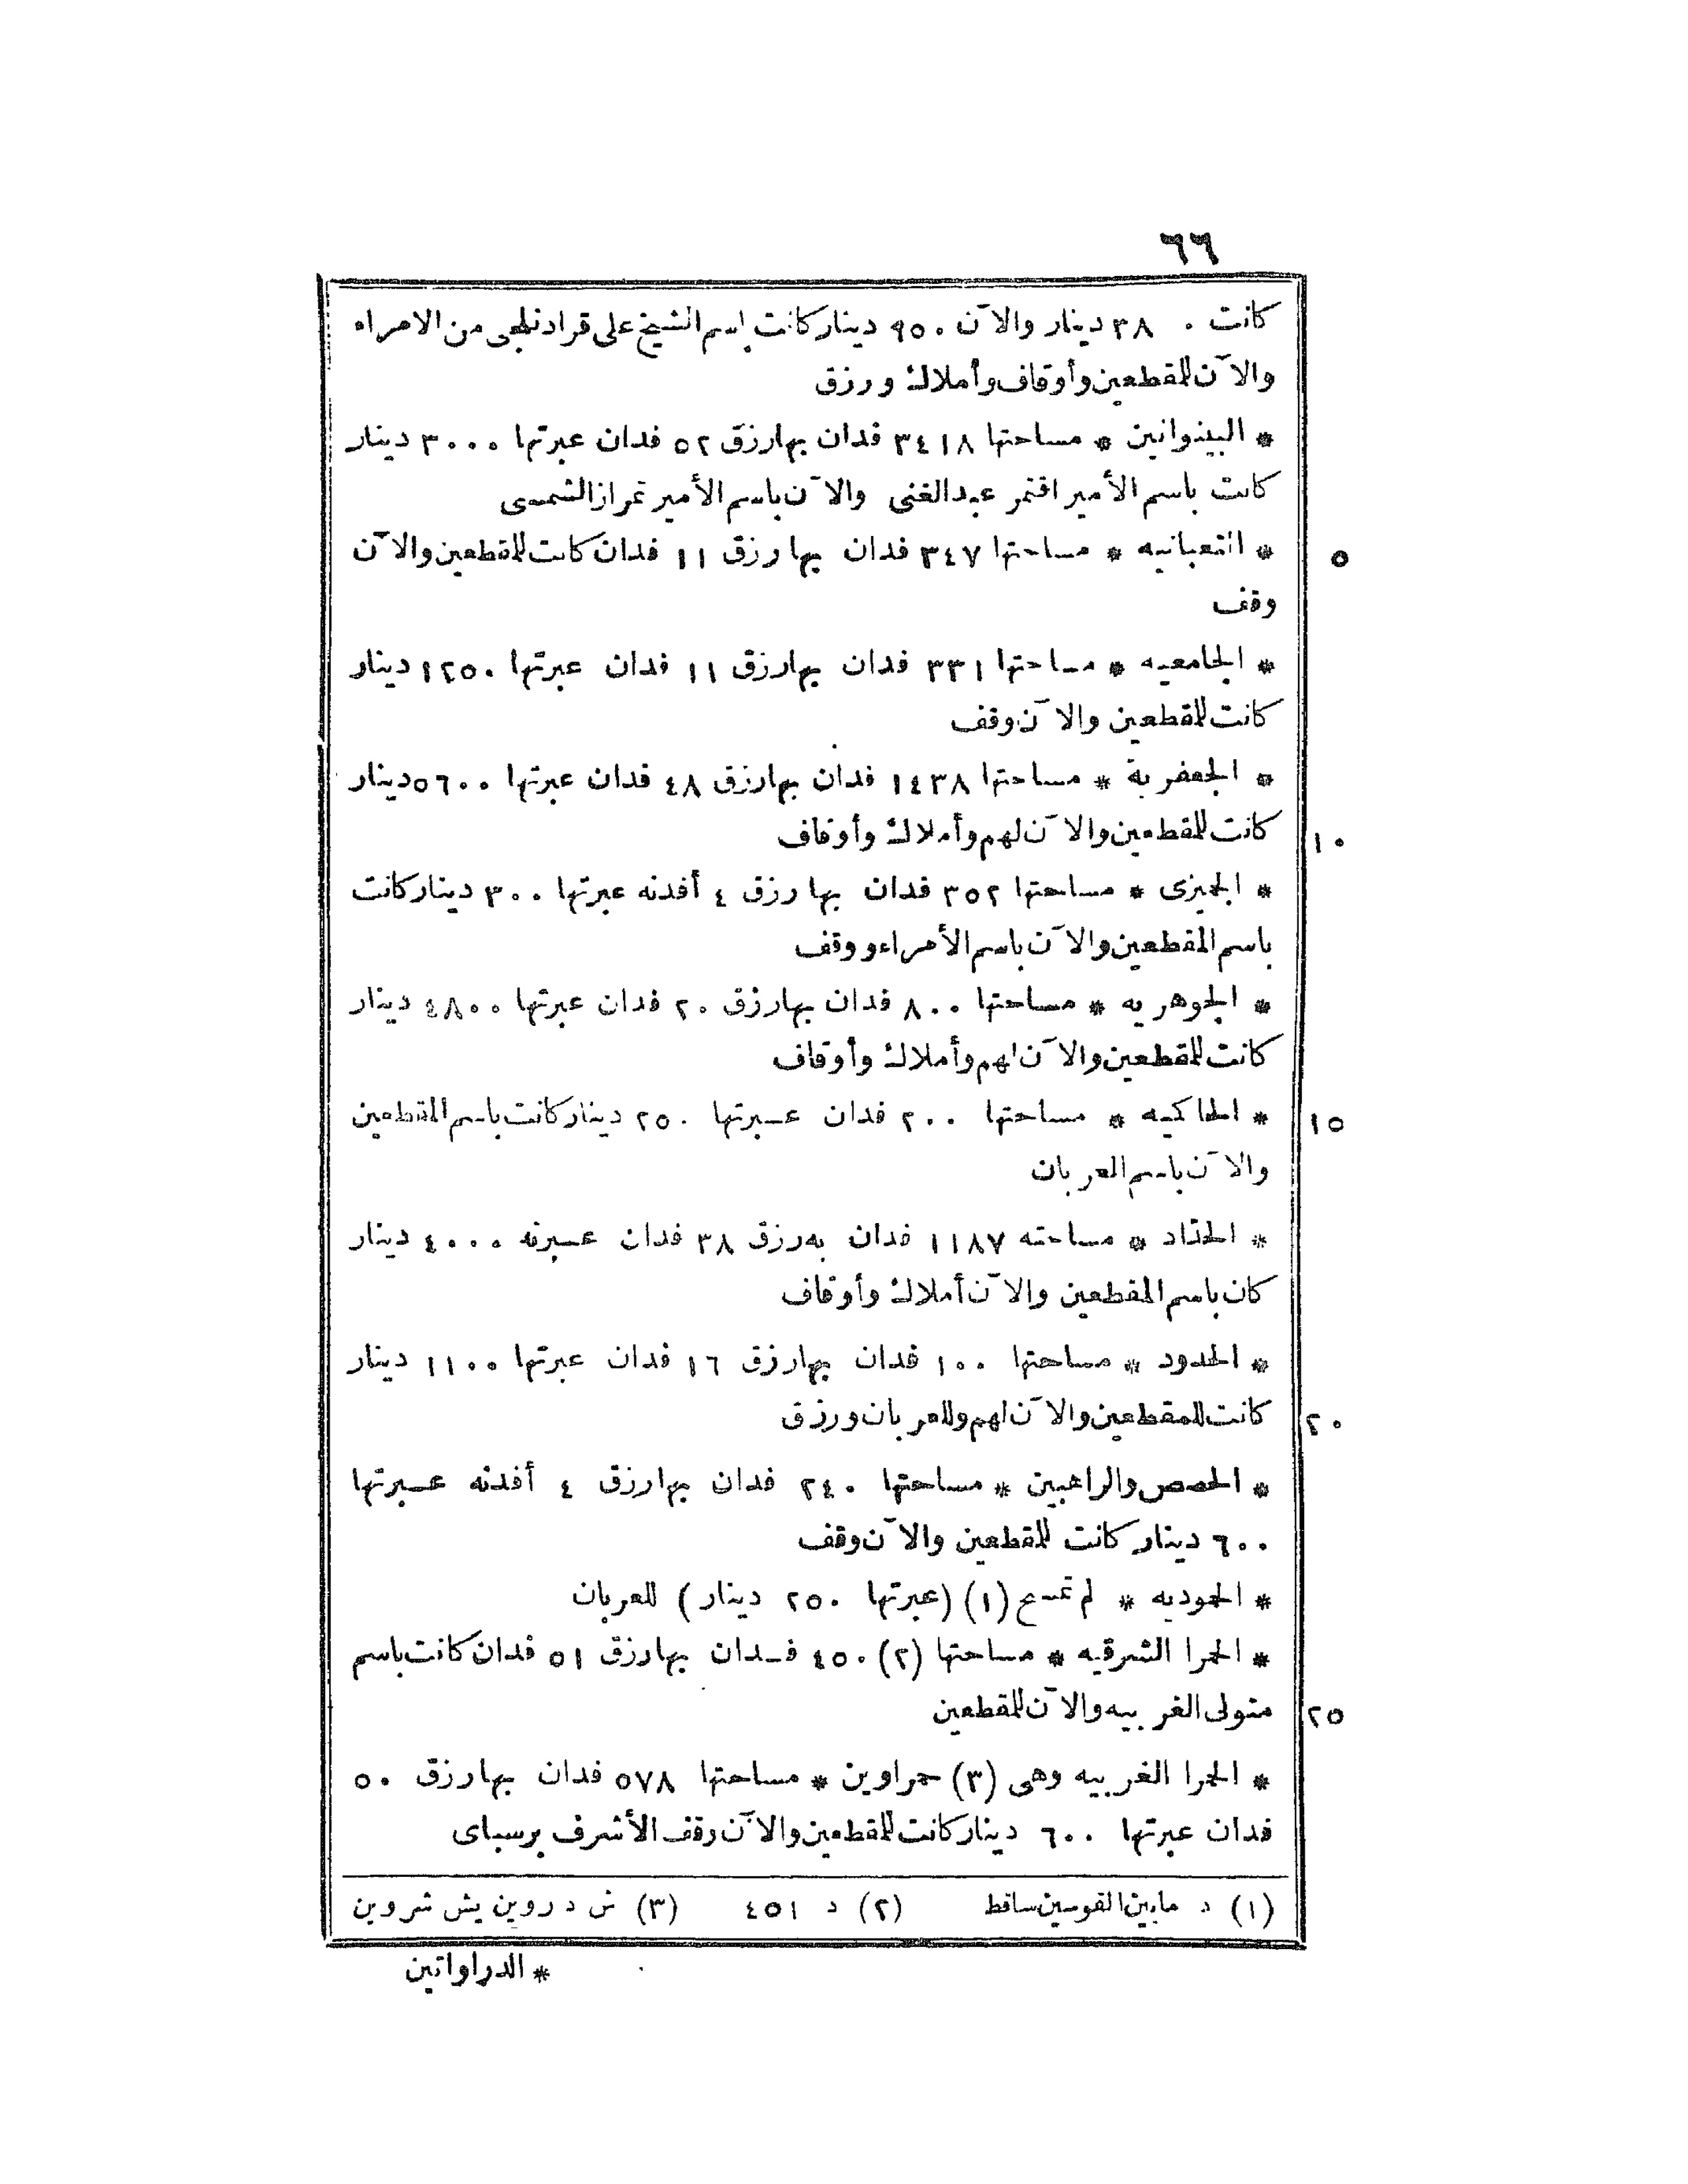 ٦٦
كانت ٣٨٠ دينار والآن ٩٥٠ دينار كانت باسم الشيخ على قرادنلجى من الامراء
والآن للمقطعين وأوقاف وأملاك ورزق
* البينوانين * مساحتها ٣٤١٨ فدان بها رزق ٥٢ فدان عبرتها ٣٠٠٠ دينار
كانت باسم الأمير اقتمر عبد الغنى والآن باسم الأمير تمراز الشمسى
٥ * الثعبانيه * مساحتها ٣٤٧ فدان بها رزق ١١ فدان كانت للمقطعين والآن
وقف
* الجامعيه * مساحتها ٣٣١ فدان بها رزق ١١ فدان عبرتها ١٢٥٠ دينار
كانت للمقطعين والآن وقف
* الجعفرية * مساحتها ١٤٣٨ فدان بها رزق ٤٨ فدان عبرتها ٥٦٠٠ دينار
١٠ كانت للمقطعين والآن لهم وأملاك وأوقاف
* الجميزى * مساحتها ٣٥٢ فدان بها رزق ٤ أفدنه عبرتها ٣٠٠ دينار كانت
باسم المقطعين والآن باسم الأمراء ووقف
* الجوهريه * مساحتها ٨٠٠ فدان بها رزق ٢٠ فدان عبرتها ٤٨٠٠ دينار
كانت للمقطعين والآن لهم وأملاك وأوقاف
١٥ * الحاكميه * مساحتها ٢٠٠ فدان عبرتها ٢٥٠ دينار كانت باسم المقطعين
والآن باسم العربان
* الحداد * مساحته ١١٨٧ فدان به رزق ٣٨ فدان عبرته ٤٠٠٠ دينار
كان باسم المقطعين والآن أملاك وأوقاف
* الحدود * مساحتها ١٠٠ فدان بها رزق ١٦ فدان عبرتها ١١٠٠ دينار
٢٠ كانت للمقطعين والآن لهم وللعربان ورزق
* الحصص والراهبين * مساحتها ٢٤٠ فدان بها رزق ٤ أفدنه عبرتها
٦٠٠ دينار كانت للمقطعين والآن وقف
* الحموديه * لم تمسح (١) (عبرتها ٢٥٠ دينار) للعربان
* الحمرا الشرقيه * مساحتها (٢) ٤٥٠ فدان بها رزق ٥١ فدان كانت باسم
٢٥ متولى الغربيه والآن للمقطعين
* الحمرا الغربيه وهى (٣) حمراوين * مساحتها ٥٧٨ فدان بها رزق ٥٠
فدان عبرتها ٦٠٠ دينار كانت للمقطعين والآن وقف الأشرف برسباى
(١) د مابين القوسين ساقط (٢) د ٤٥١ (٣) ش د روين يش شروين
* الدراواتين